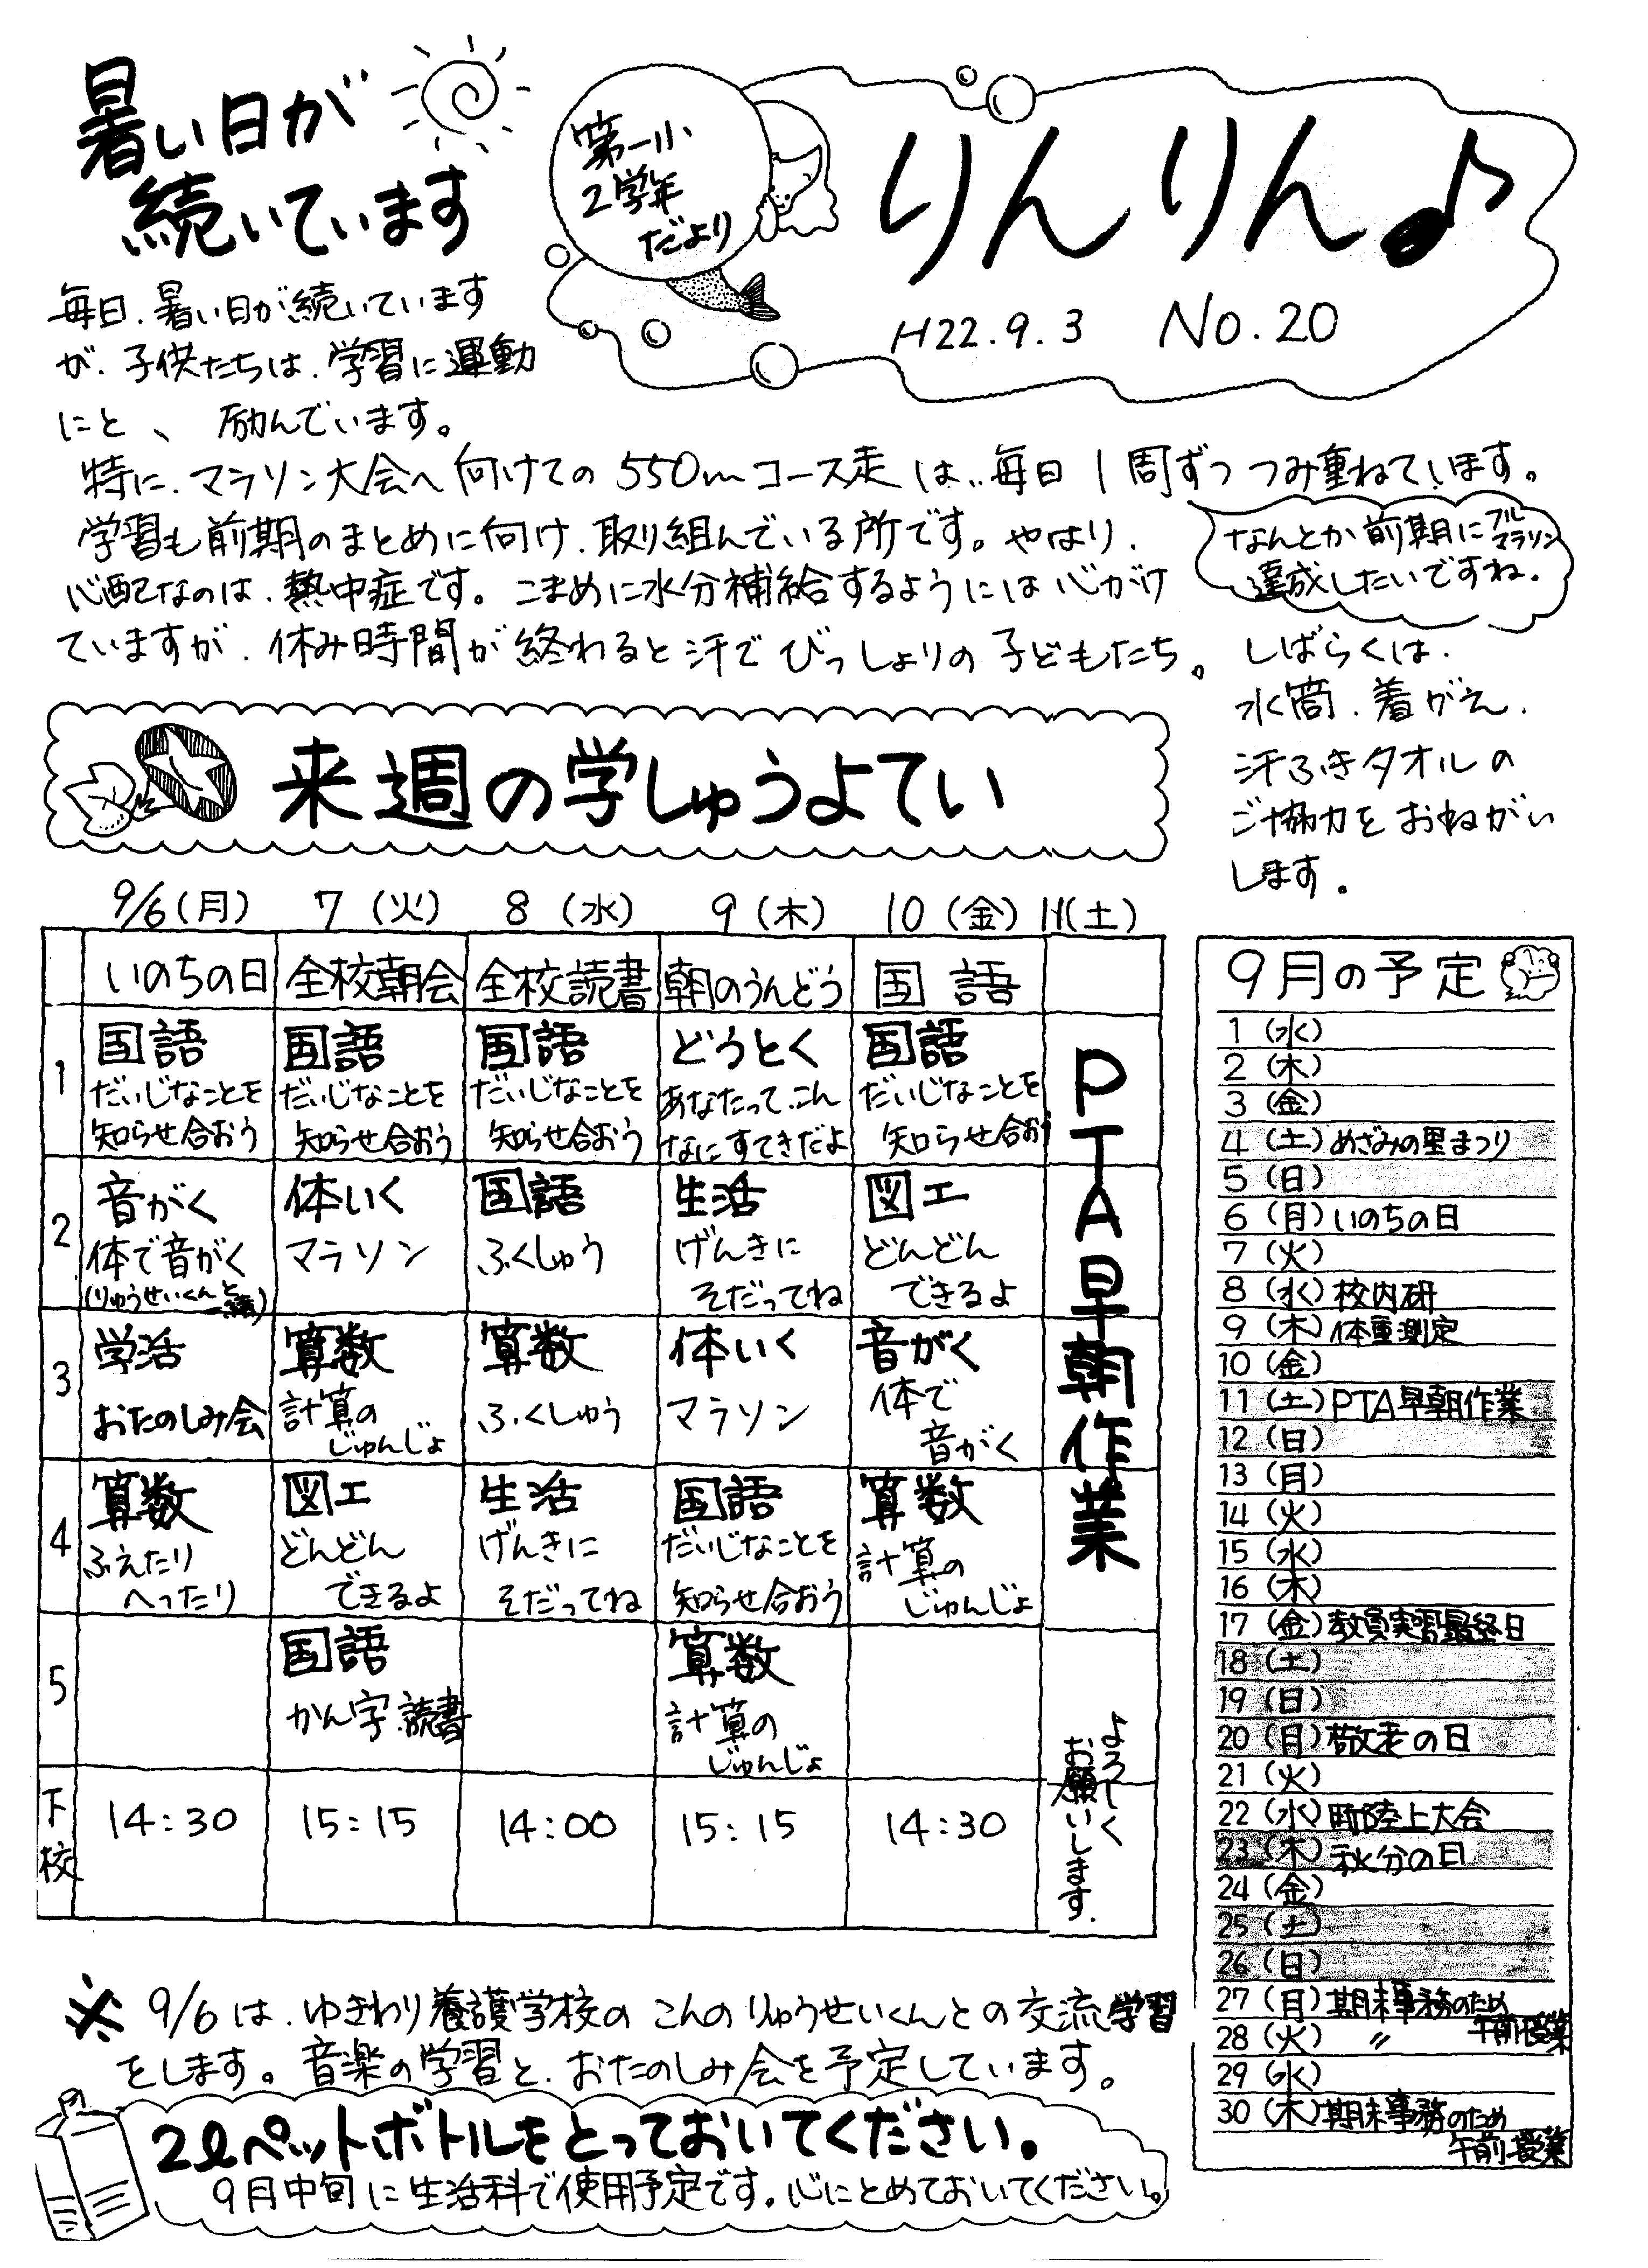 暑い日が
続いています
第一小
2学年
だより
りんりん♪
H22.9.3 No.20
毎日、暑い日が続いています
が、子供たちは、学習に運動
にと、励んでいます。
特に、マラソン大会へ向けての550mコース走は、毎日1周ずつつみ重ねています。
学習も前期のまとめに向け、取り組んでいる所です。やはり、
心配なのは、熱中症です。こまめに水分補給するようには心がけ
ていますが、休み時間が終わると汗でびっしょりの子どもたち。
なんとか前期にフルマラソン
達成したいですね。
しばらくは、
水筒、着がえ、
汗ふきタオルの
ご協力をおねがい
します。
来週の学しゅうよてい
9/6(月) 7(火) 8(水) 9(木) 10(金) 11(土)
いのちの日 全校朝会 全校読書 朝のうんどう 国語
1 国語 国語 国語 どうとく 国語
だいじなことを だいじなことを だいじなことを あなたって、こん だいじなことを
知らせ合おう 知らせ合おう 知らせ合おう なにすてきだよ 知らせ合おう
2 音がく 体いく 国語 生活 図工
体で音がく マラソン ふくしゅう げんきに どんどん
(りゅうせいくんと一緒) そだってね できるよ
3 学活 算数 算数 体いく 音がく
おたのしみ会 計算の ふくしゅう マラソン 体で
じゅんじょ 音がく
4 算数 図工 生活 国語 算数
ふえたり どんどん げんきに だいじなことを 計算の
へったり できるよ そだってね 知らせ合おう じゅんじょ
5 国語 算数
かん字、読書 計算の
じゅんじょ
下校 14:30 15:15 14:00 15:15 14:30
PTA早朝作業
よろしく
お願いします.
9月の予定
1(水)
2(木)
3(金)
4(土)めざみの里まつり
5(日)
6(月)いのちの日
7(火)
8(水)校内研
9(木)体重測定
10(金)
11(土)PTA早朝作業
12(日)
13(月)
14(火)
15(水)
16(木)
17(金)教員実習最終日
18(土)
19(日)
20(月)敬老の日
21(火)
22(水)町陸上大会
23(木)秋分の日
24(金)
25(土)
26(日)
27(月)期末事務のため
午前授業
28(火) 〃
29(水)
30(木)期末事務のため
午前授業
※ 9/6は、ゆきわり養護学校のこんのりゅうせいくんとの交流学習
をします。音楽の学習と、おたのしみ会を予定しています。
2ℓペットボトルをとっておいてください。
9月中旬に生活科で使用予定です。心にとめておいてください。